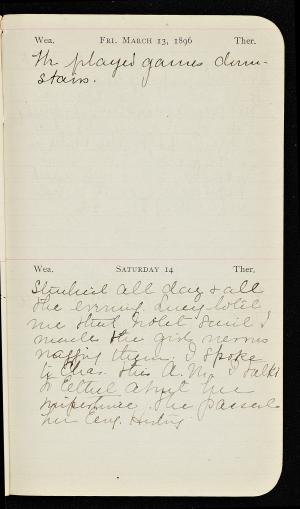 Wea. FRI. MARCH 13, 1896 Ther.
We played games down-
stairs.
Wea. SATURDAY 14 Ther.
Studied all day & all
the evening. Lucy told
me that Violet said I
made the girls nervous
nagging them. I spoke
to Chas. this A.M. & talked
to Ethel about her
impertinence. She passed
her Eng. History